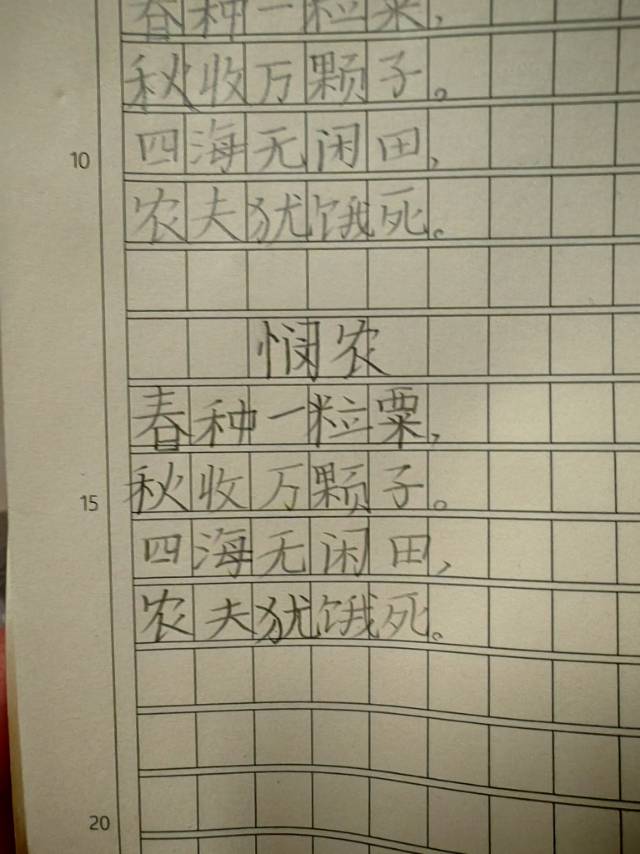 春种一粒粟，
秋收万颗子。
10
四海无闲田，
农夫犹饿死。
悯农
春种一粒粟，
15
秋收万颗子。
四海无闲田，
农夫犹饿死。
20